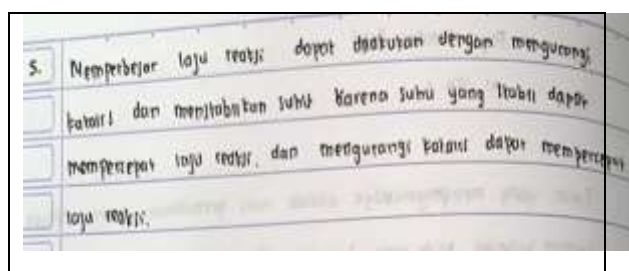 5. Memperbesar laju reaksi dapat dilakukan dengan mengurangi
katalis dan menstabilkan suhu karena suhu yang stabil dapat
mempercepat laju reaksi, dan mengurangi katalis dapat mempercepat
laju reaksi.